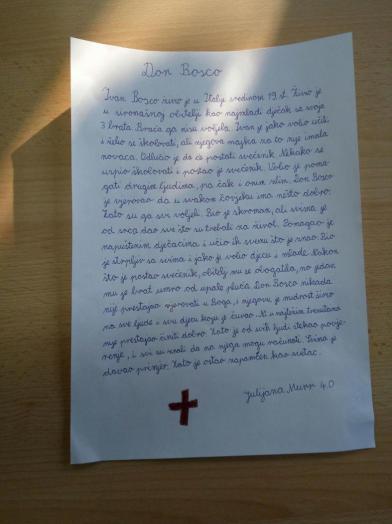 Don Bosco
Ivan Bosco živio je u Italiji sredinom 19. st. Živio je
u siromašnoj obitelji kao najmlađi dječak sa svoja
3 brata. Braća ga nisu voljela. Ivan je jako volio učiti
i želio se školovati, ali njegova majka za to nije imala
novaca. Odlučio je da će postati svećenik. Nekako se
uspio školovati i postao je svećenik. Volio je poma
gati drugim ljudima, pa čak i onim zlim. Don Bosco
je vjerovao da u svakom čovjeku ima nešto dobro.
Zato su ga svi voljeli. Bio je skroman, ali svima je
od srca dao sve što su trebali za život. Pomagao je
napuštenim dječacima i učio ih svemu što je znao. Bio
je strpljiv sa svima i jako je volio djecu i mlade. Nakon
što je postao svećenik, obitelj mu se obogatila, no jedan
mu je brat umro od upale pluća. Don Bosco nikada
nije prestajao vjerovati u Boga, i njegova je mudrost
na sve ljude i svu djecu koju je čuvao. Ni u najtežim trenutcima
nije prestajao činiti dobro. Zato je od svih ljudi stekao povje-
renje, i svi su znali da na njega mogu računati. Svima je
davao primjer. Zato je ostao zapamćen kao svetac.
Julijana 4.D